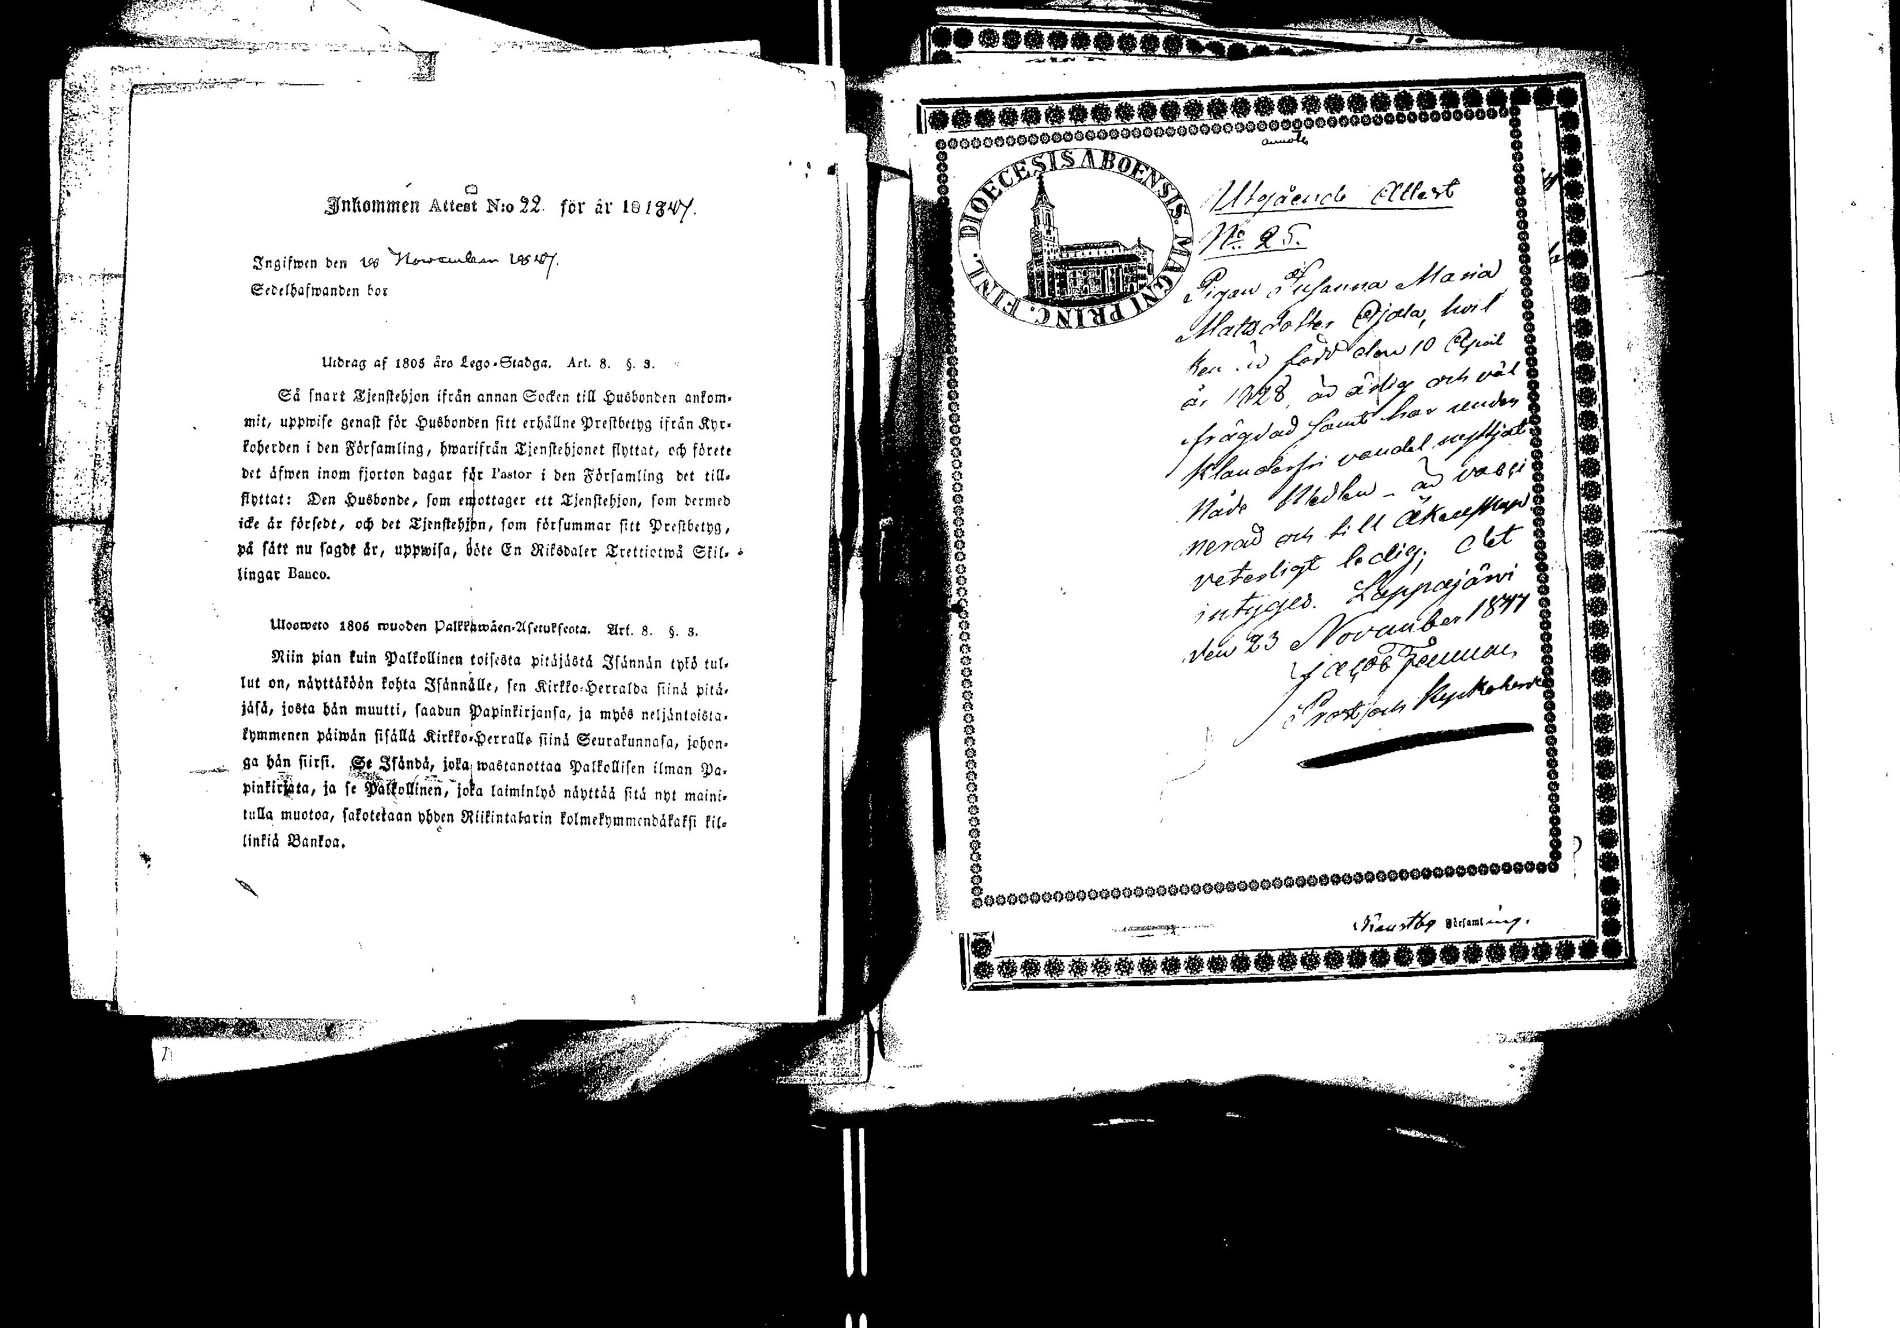 Inkommen Attest N:o 22. för år 18 1847.
Ingifwen den November 1847.
Sedelhafwanden bor
Utdrag af 1805 års Lego-Stadga. Art. 8. §. 3.
Så snart Tjenstehjon ifrån annan Socken till Husbonden ankom-
mit, uppwise genast för Husbonden sitt erhållne Prestbetyg ifrån Kyr-
koherden i den Församling, hwarifrån Tjenstehjonet flyttat, och förete
det äfwen inom fjorton dagar för Pastor i den Församling det till-
flyttat: Den Husbonde, som emottager ett Tjenstehjon, som dermed
icke är försedt, och det Tjenstehjon, som försummar sitt Prestbetyg,
på sätt nu sagdt är, uppwisa, böte En Riksdaler Trettiotwå Skil-
lingar Banco.
Ulosweto 1805 wuoden Palkkawäen-Asetuksesta. Art. 8. §. 3.
Niin pian kuin Palkollinen toisesta pitäjästä Isännän tykö tul-
lut on, näyttäköön kohta Isännälle, sen Kirkko-Herralda siinä pitä-
jäsä, josta hän muutti, saadun Papinkirjansa, ja myös neljäntoista-
kymmenen päiwän sisällä Kirkko-Herralle siinä Seurakunnasa, johon-
ga hän siirsi. Se Isändä, joka wastanottaa Palkollisen ilman Pa-
pinkirjata, ja se Palkollinen, joka laiminlyö näyttää sitä nyt maini-
tulla muotoa, sakotetaan yhden Riikintalarin kolmekymmendäkaksi kil-
linkiä Bankoa.
DIOECESIS ABOENSIS. MAGNI PRINC. FINL.
Utgående Attest
No 25.
Pigan Susanna Maria
Matsdotter Ojala, hvil
ken är född den 10 April
år 1828, är ärlig och väl
frägdad samt har under
klanderfri vandel nyttjat
Nåde Medlen - är vacci
nerad och till Äktenskap
veterligt ledig; det
intyges. Lappajärvi
den 23 November 1847
Jacob
Prost och Kyrkoherde
Kaustby Församling.